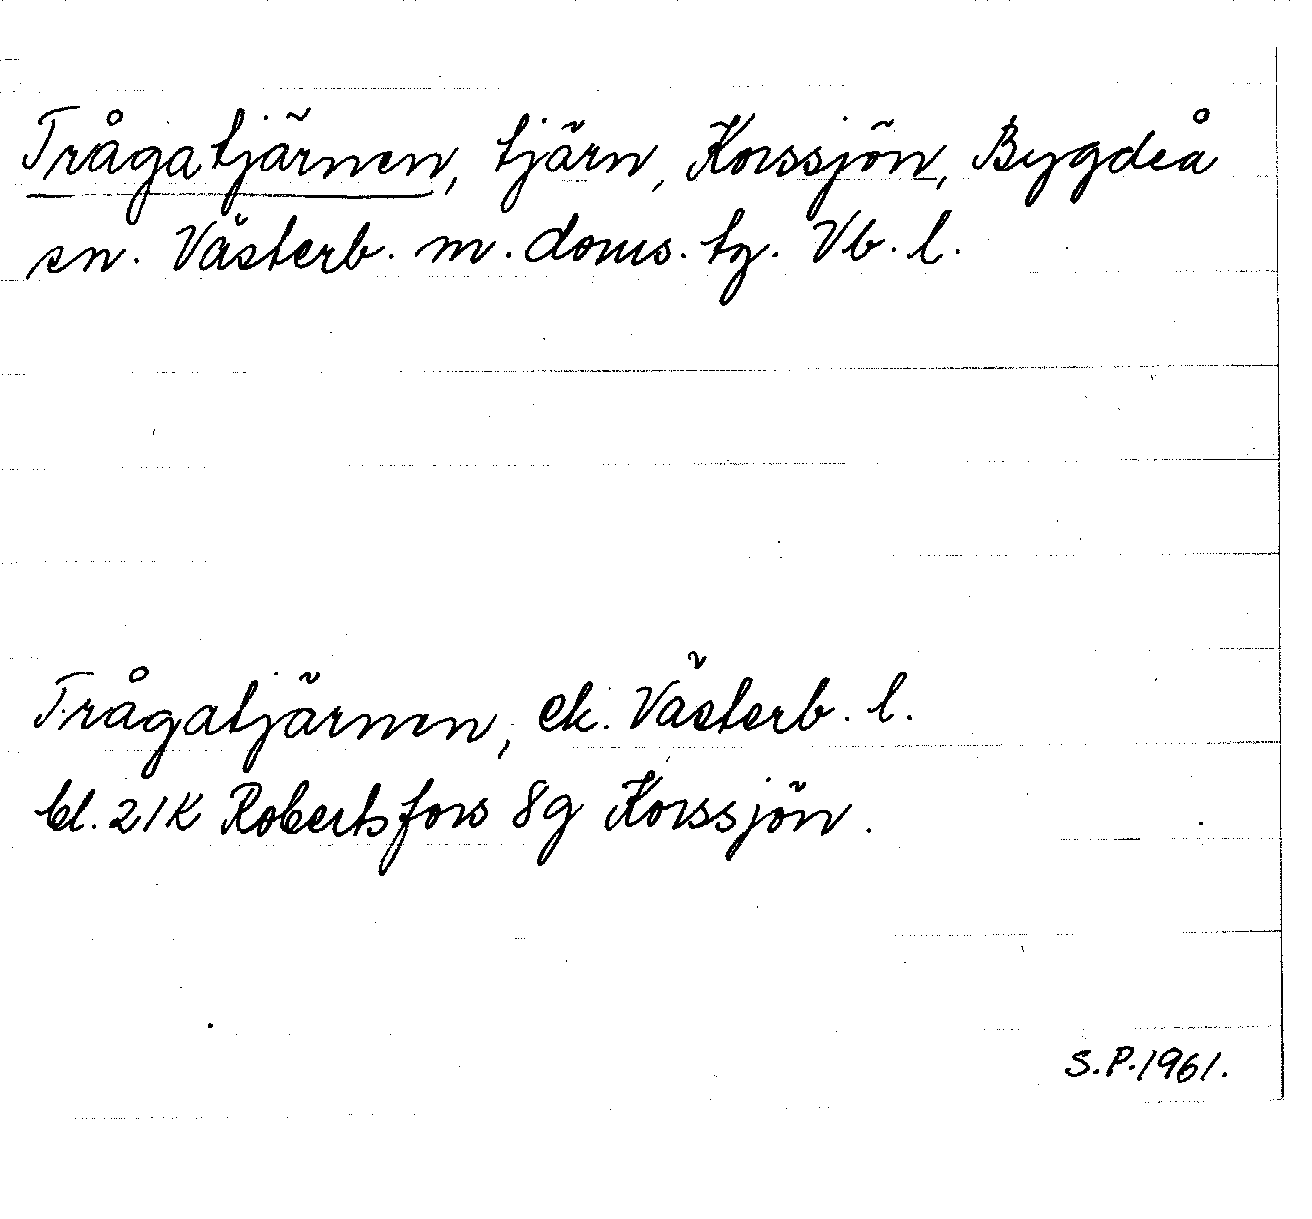 Trågatjärnen, tjärn, Korssjön, Bygdeå
sn. Västerb. m. doms. tg. Vb. l.
Trågatjärnen, ek. Västerb. l.
bl. 21K Robertsfors 8g Korssjön.
S.P. 1961.